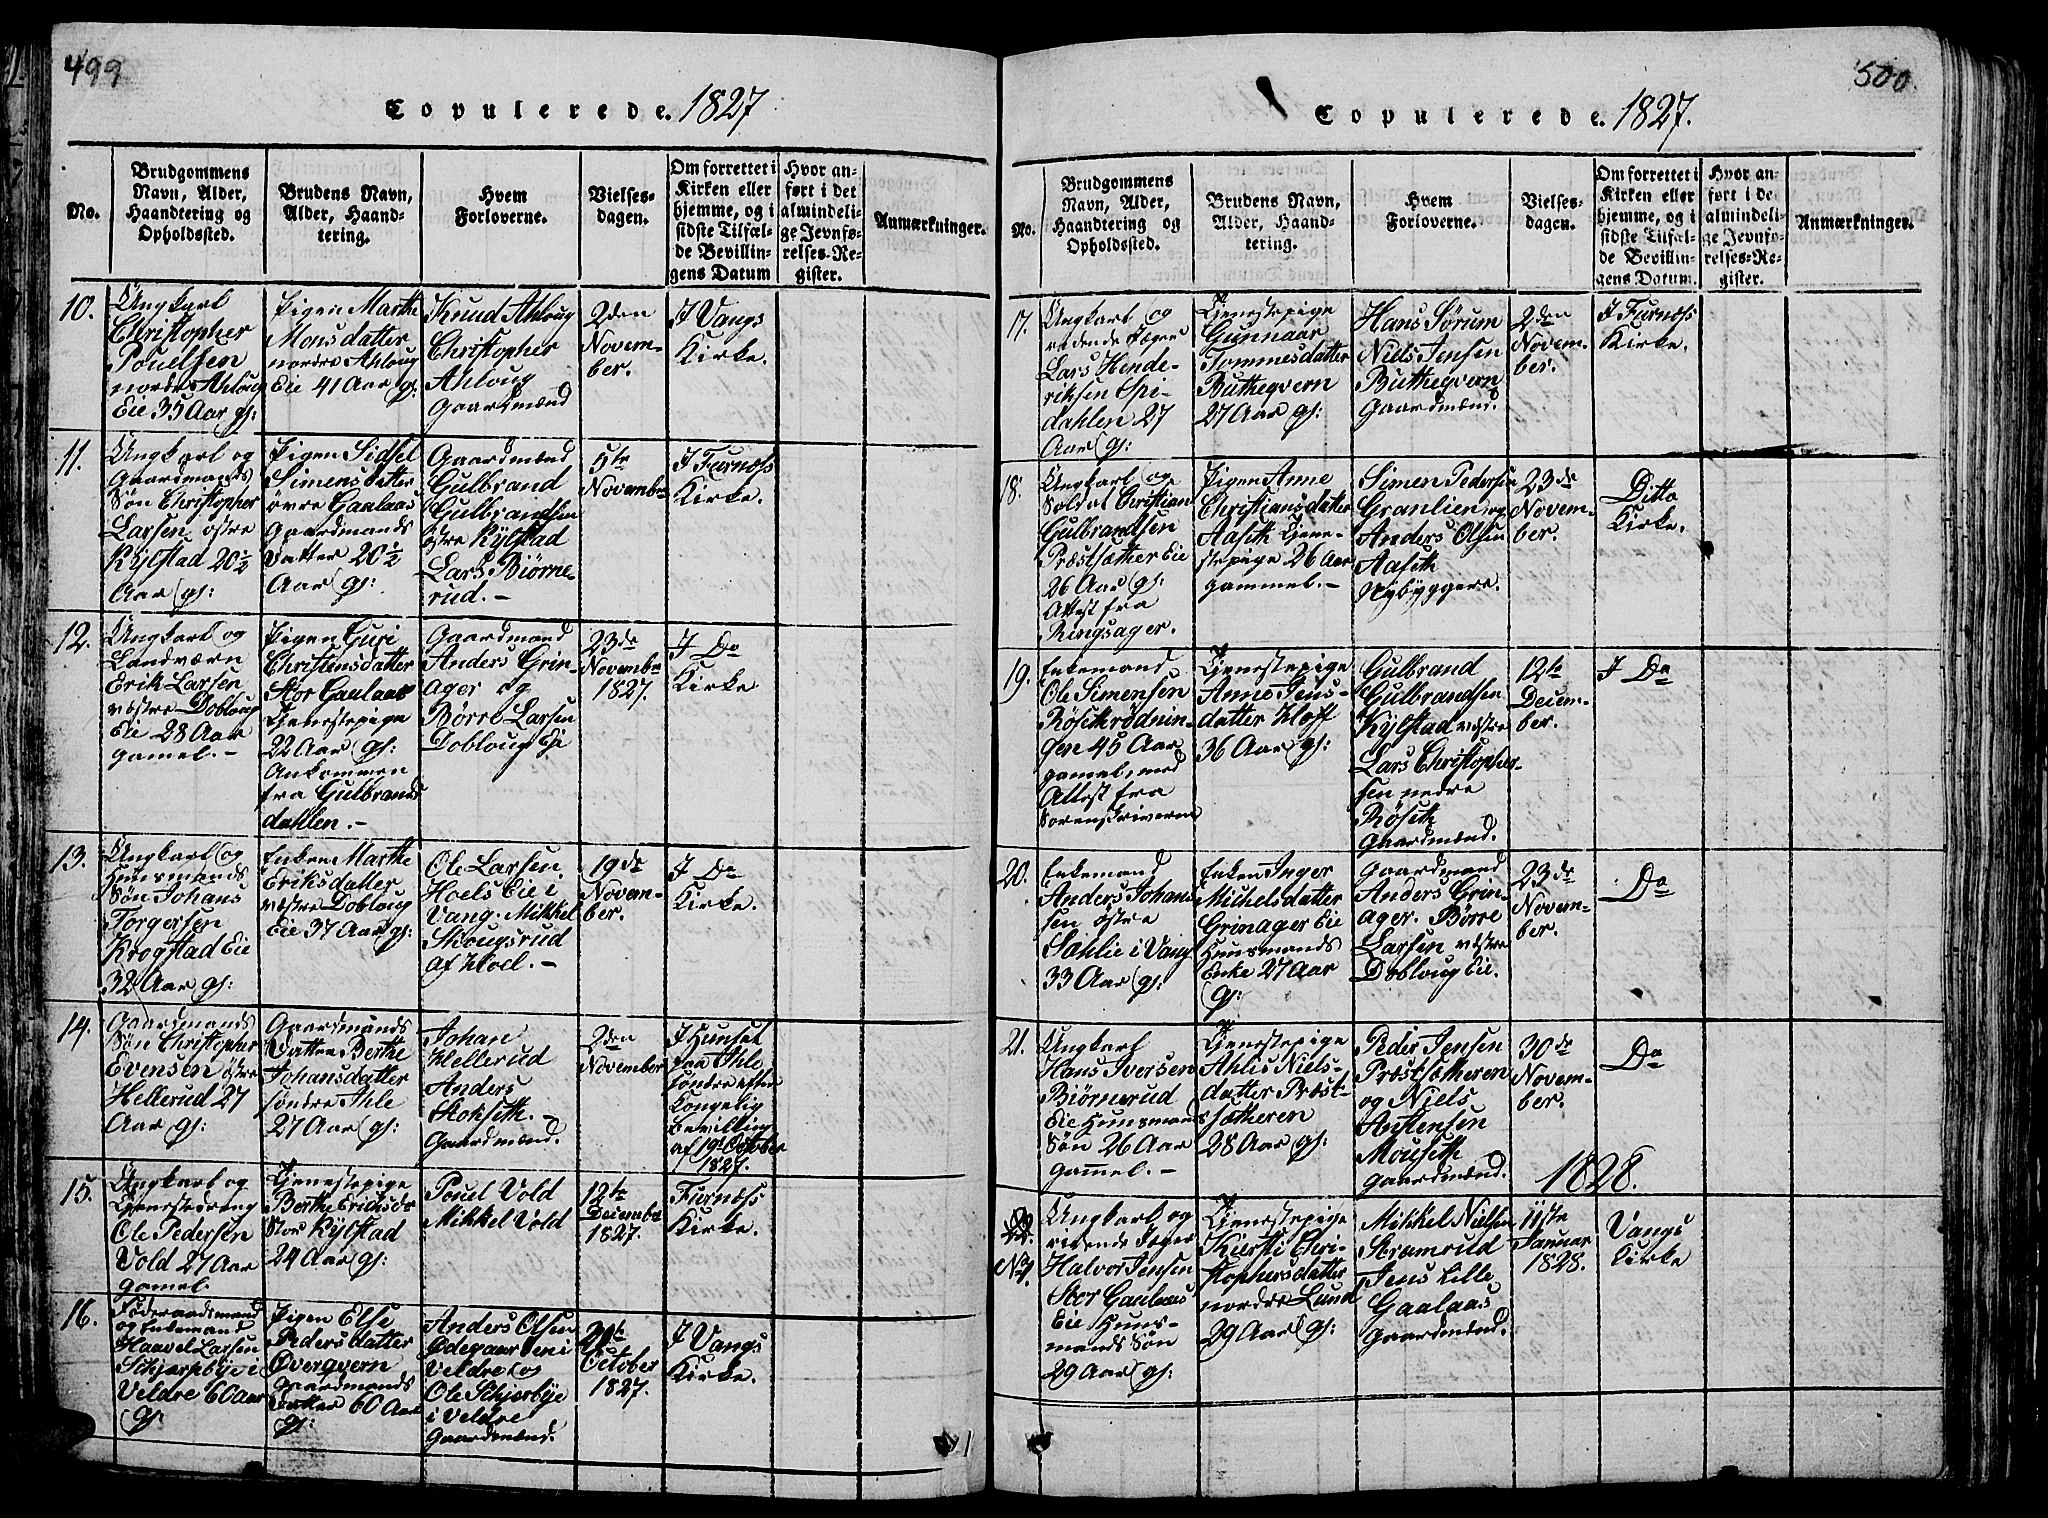 499
Copulerede. 1827
No.
Brudgommens
Navn, Alder,
Haandtering og
Opholdssted.
Brudens Navn,
Alder, Haand-
tering.
Hvem
Forloverne.
Vielses-
dagen.
Om forrettet i
Kirken eller
hjemme, og i
sidste Tilfæl-
de Bevillin-
gens Datum
Hvor an-
ført i det
almindeli-
ge Jevnfø-
relses-Re-
gister.
Anmærkninger.
10.
Ungkarl
Christopher
Pouelsen
nordre Ahloug
Eie 35 Aar gl:
Pigen Marthe
Monsdatter
nordre Ahloug
Eie 41 Aar gl:
Knud Ahloug
Christopher
Ahloug
Gaardmænd
2den
Novem-
ber.
I Vangs
Kirke.
11.
Ungkarl og
Gaardmands
Søn Christopher
Larsen østre
Kylstad 20½
Aar gl:
Pigen Sidsel
Simensdatter
øvre Gaalaas
Gaardmands
Datter 20½
Aar gl:
Gaardmænd
Gulbrand
Gulbrandsen
østre Kylstad
Lars Biørne-
rud. -
5te
Novembr
I Furnæss
Kirke.
12.
Ungkarl og
Landværn
Erik Larsen
vestre Dobloug
Eie 28 Aar
gamel. -
Pigen Guri
Christensdatter
Stor Gaalaas
Tjenestepige
22 Aar gl:
Ankommen
fra Gulbrands
dahlen. -
Gaardmand
Anders Grin-
ager og
Børre Larsen
Dobloug Eje
23de
Novembr
1827.
I Do
Kirke
13.
Ungkarl og
Huusmands
Søn Johans
Torgersen
Krogstad Eie
32 Aar gl:
Enken Marthe
Eriksdatter
vestre Dobloug
Eie 37 Aar gl:
Ole Larsen
Hoels Eie i
Vang. Mikkel
Skougsrud
af Hoel. -
19de
Novem-
ber.
I Do
Kirke.
14.
Gaardmands
Søn Christopher
Evensen østre
Hellerud 27
Aar gl:
Gaardmands
Datter Berthe
Johansdatter
søndre Ihle
27 Aar gl:
Johan
Hellerud
Anders
Stokseth. -
Gaardmænd.
2den
November
I Huuset
paa Ihle
søndre efter
Kongelig
Bevilling
af 19de October
1827.
15.
Ungkarl og
Tjenestedreng
Ole Pedersen
Vold 27 Aar
gamel
Tjenestepige
Berthe Ericksdr
Stor Kylstad
24 Aar gl:
Pouel Vold
Mikkel Vold
12te
Decembr
1827.
Furnæss
Kirke.
16.
Føderaadsmand
og Enkemand
Haavel Larsen
Schjerpbye i
Veldre 60 Aar
gl:
Pigen Else
Pedersdatter
Øverqvern
Gaardmands
Datter 60 Aar
gl:
Anders Olsen
Ødegaarden i
Veldre og
Ole Schjerbye
i Veldre
Gaardmænd.
October
1827.
I Vangs
Kirke.
500.
Copulerede. 1827.
No.
Brudgommens
Navn, Alder,
Haandtering og
Opholdssted.
Brudens Navn,
Alder, Haand-
tering.
Hvem
Forloverne.
Vielses-
dagen.
Om forrettet i
Kirken eller
hjemme, og i
sidste Tilfæl-
de Bevillin-
gens Datum.
Hvor an-
ført i de
almindeli-
ge Jevnfø-
relses-Re-
gister.
Anmærkninger.
17.
Ungkarl og
ridende Jæger
Lars Hinde-
riksen Spi-
dahlen 27
Aar gl:
Tjenestepige
Gunnaar
Tommesdatter
Butheqvern
27 Aar gl:
Hans Sørum
Niels Jensen
Butheqvern
Gaardmænd.
2den
Novem-
ber.
I Furnæss
Kirke.
18.
Ungkarl og
Soldat Christian
Gulbrandsen
Præstsæther Eie
26 Aar gl:
Attest fra
Ringsager.
Pigen Anne
Christiansdatter
Aaseth Tjene-
stepige 26 Aar
gammel. -
Simen Pedersen
Granlien og
Anders Olsen
Aaseth
Nybyggere.
23de
Novem-
ber.
Ditto
Kirke.
19.
Enkemand
Ole Simensen
Røsethrødnin-
gen 45 Aar
gamel, med
Attest fra
Sorenskriveren
Tjenestepige
Anne Jens-
datter Kloff
36 Aar gl:
Gulbrand
Gulbrandsen
Kylstad vestre
Lars Christopher-
sen nedre
Røseth
Gaardmænd.
12te
Decem-
ber.
I Do
20.
Enkemand
Anders Johan-
sen østre
Sæhlie i Vang
33 Aar gl:
Enken Inger
Michelsdatter
Grinager Eie
Huusmands
Enke 27 Aar
gl:
Gaardmand
Anders Grin-
ager. Børre
Larsen vestre
Dobloug Eie.
23de
Novem-
ber.
Do
21.
Ungkarl
Hans Iversen
Biørnerud
Eie Huusmands
Søn 26 Aar
gamel. -
Tjenestepige
Ahlis Niels-
datter Præst-
sætheren
28 Aar gl:
Peder Jensen
Præstsætheren
og Niels
Austensen
Mouseth
Gaardmænd.
30de
Novem-
ber.
Do
1828.
22.
N 1.
Ungkarl og
ridende Jæger
Halvor Jensen
Stor Gaalaas
Eie Huus-
mands Søn
29 Aar gl:
Tjenestepige
Kiersti Chri-
stophersdatter
nordre Lund
29 Aar gl:
Mikkel Nielsen
Stramrud
Jens Lille
Gaalaas
Gaardmænd.
11ste
Januar
1828.
Vangs
Kirke